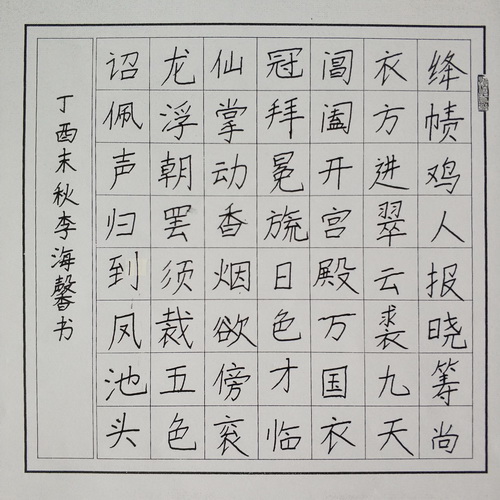 绛帻鸡人报晓筹尚
衣方进翠云裘九天
阊阖开宫殿万国衣
冠拜冕旒日色才临
仙掌动香烟欲傍衮
龙浮朝罢须裁五色
诏佩声归到凤池头
丁酉末秋李海馨书